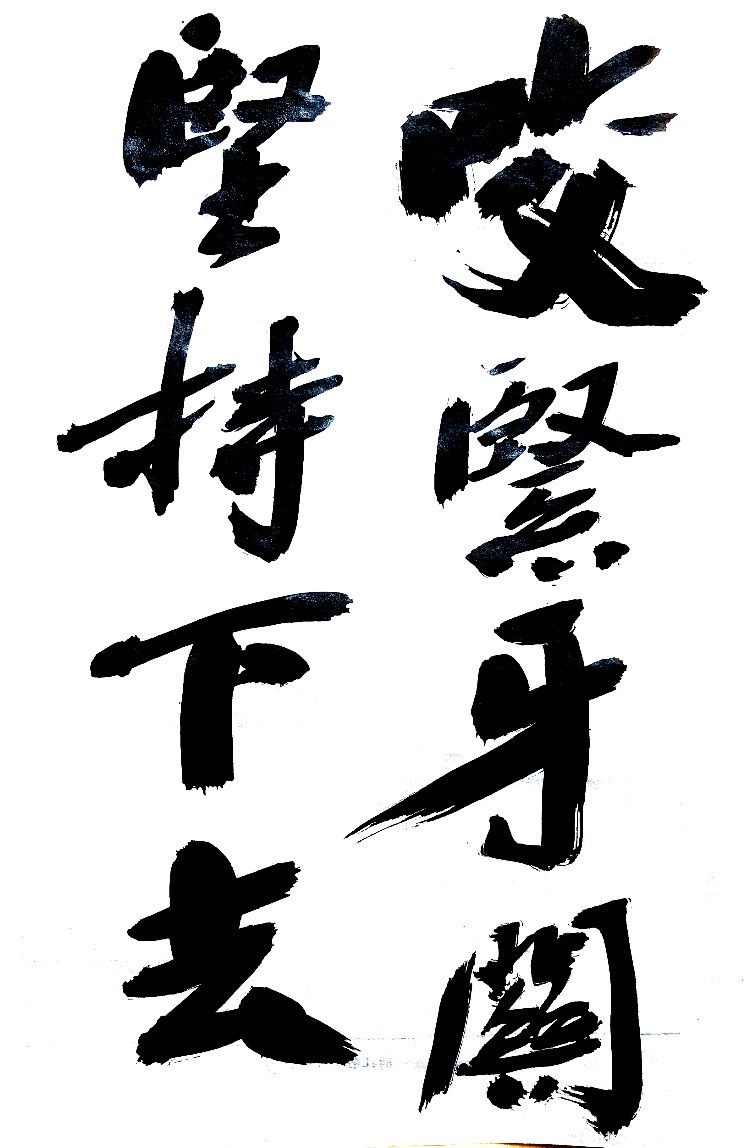 咬緊牙關
堅持下去